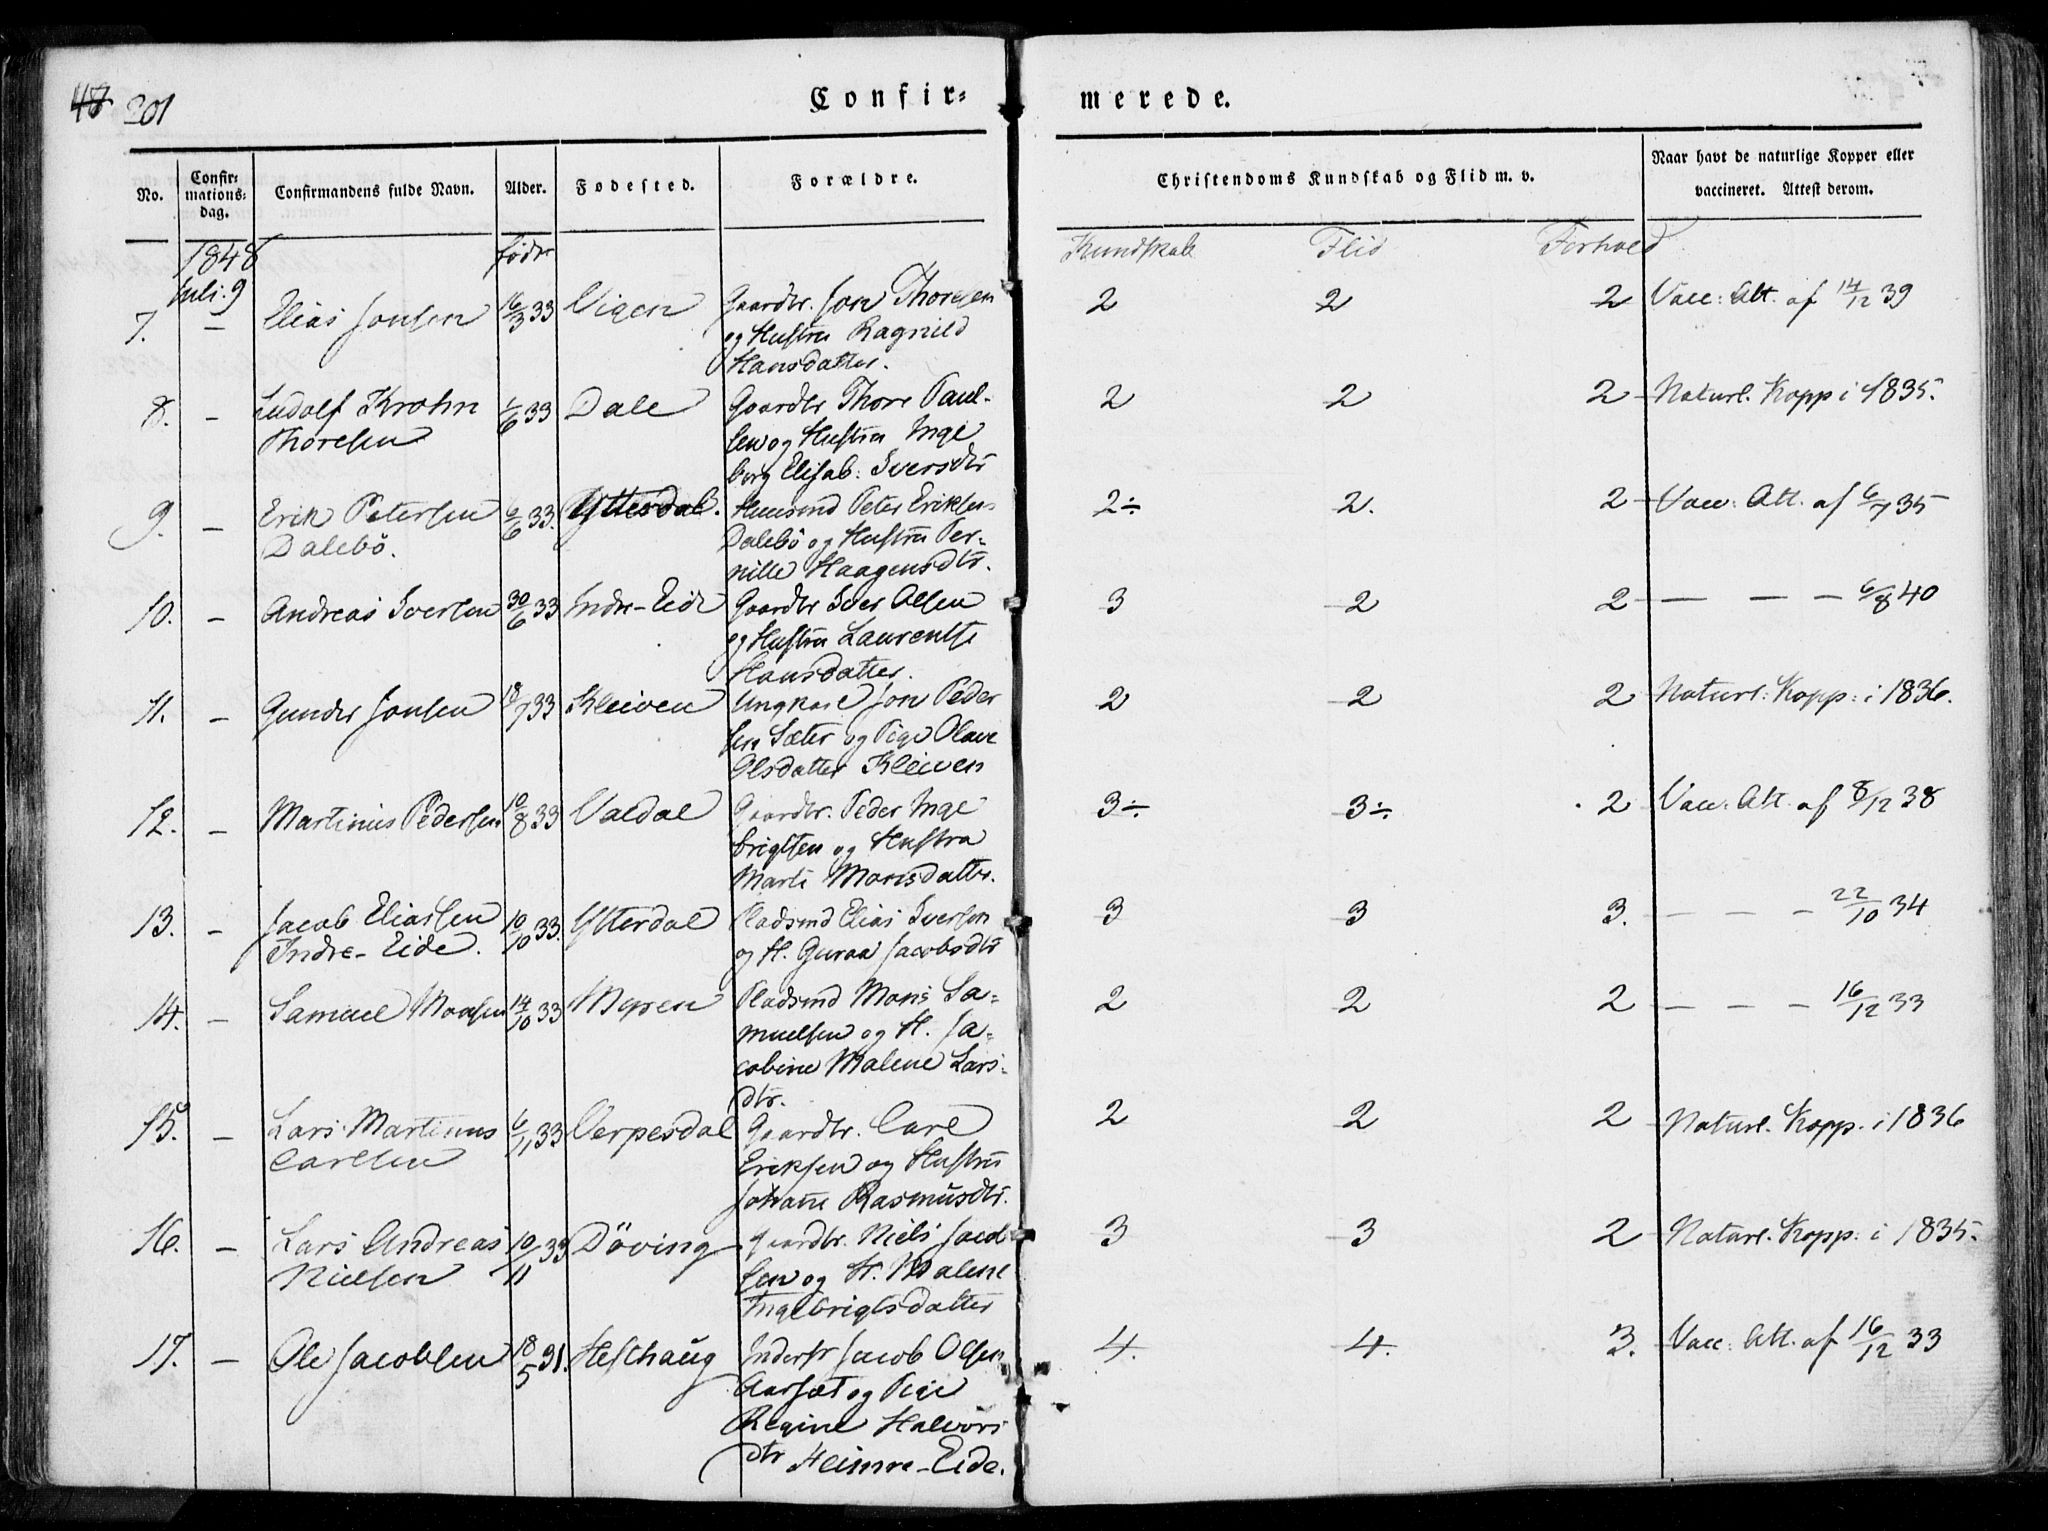 48 201
Confir=
merede.
No.
Confir=
mations=
dag.
Confirmandens fulde Navn.
Alder.
Fødested.
Forældre.
Christendoms Kundskab og Flid m. v.
Naar havt de naturlige Kopper eller
vaccineret. Attest derom.
1848
Juli. 9
Kundskab Flid Forhold
7. – Elias Jonsen 16/3 33 Vigen Gaardbr. Jon Thoresen 2 2 2 Vacc: Att. af 14/12 39
og Hustru Ragnild
Hansdatter.
8. – Ludolf Krohn 1/6 33 Dale Gaardbr Thore Paul- 2 2 2 Naturl. Kopp i 1835.
Thoresen sen og Hustru Inge
borg Elisab: Iversdtr
9. – Erik Petersen 6/6 33. Ytterdal. Huusmd Peter Eriksen 2÷ 2. 2 Vacc: Att. af 6/7 35
Dalebö. Dalebö og Hustru Per-
nille Haagensdtr.
10. – Andreas Iversen 30/6 33 Indre-Eide Gaardbr Iver Olsen 3 2 2 — — — 6/8 40
og Hustru Laurentse
Hansdatter.
11. – Gunder Jonsen 18/7 33 Kleiven Ungkarl Jon Peder 2 2 2 Naturl: Kopp: i 1836.
sen Sæter og Pige Olave
Olsdatter Kleiven
12. – Martinus Pedersen 10/8 33 Valdal Gaardbr. Peder Inge 3÷ 3÷ 2 Vacc: Att. af 8/12 38
brigtsen og Hustru
Marte Monsdatter.
13. – Jacob Eliassen 10/10 33. Ytterdal Pladsmd Elias Iversen 3 3 3. — — — 22/10 34
Indre-Eide. og H. Guraa Jacobsdtr
14. – Samuel Monsen 14/10 33 Myren Pladsmd Mons Sa= 2 2 2 — — — 16/12 33
muelsen og H. Ja=
cobine Malene Lars=
dtr.
15. – Lars Martinus 6/11 33 Verpesdal Gaardbr. Carl 2 2 2 Naturl. Kopp. i 1836
Carlsen Eriksen og Hustru
Johanne Rasmusdtr.
16. – Lars Andreas 10/11 33 Döving Gaardbr. Niels Jacob 3 3 2 Naturl. Kopp: i 1835.
Nielsen sen og H. Malene
Ingebrigtsdatter
17. – Ole Jacobsen 18/5 31. Hesthaug Inderst Jacob Olsen 4. 4. 3. Vacc: Att. af 16/12 33
Aarsæt og Pige
Regine Halvors
dtr Heimre-Eide.